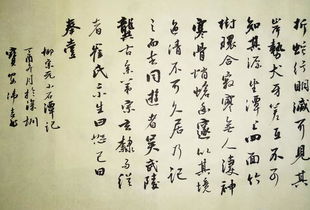 折蛇行明滅可見其
岸勢犬牙差互不可
知其源坐潭上四面竹
樹環合寂寥無人淒神
寒骨悄愴幽邃以其境
過清不可久居乃記
之而去同遊者吳武陵
龔古余弟宗玄隸而從
者崔氏二小生曰恕己曰
奉壹
柳宗元小石潭記
丁酉月於深圳
寶安